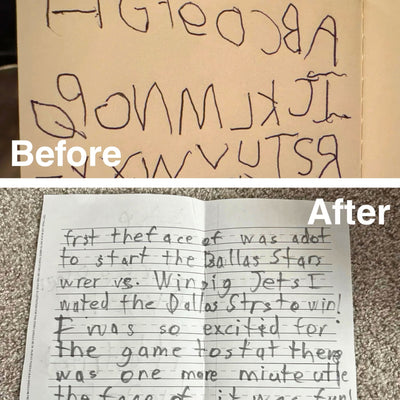 HGFeDCBA
QPONMLKJI
XWVUTSR
Before
After
frst the face of was adot
to start the Dallas Stars
wrer vs. Winpig Jets I
wated the Dallas Strs to win!
I was so excited for
the game tostat there
was one more miute utle
the face of it was fun!